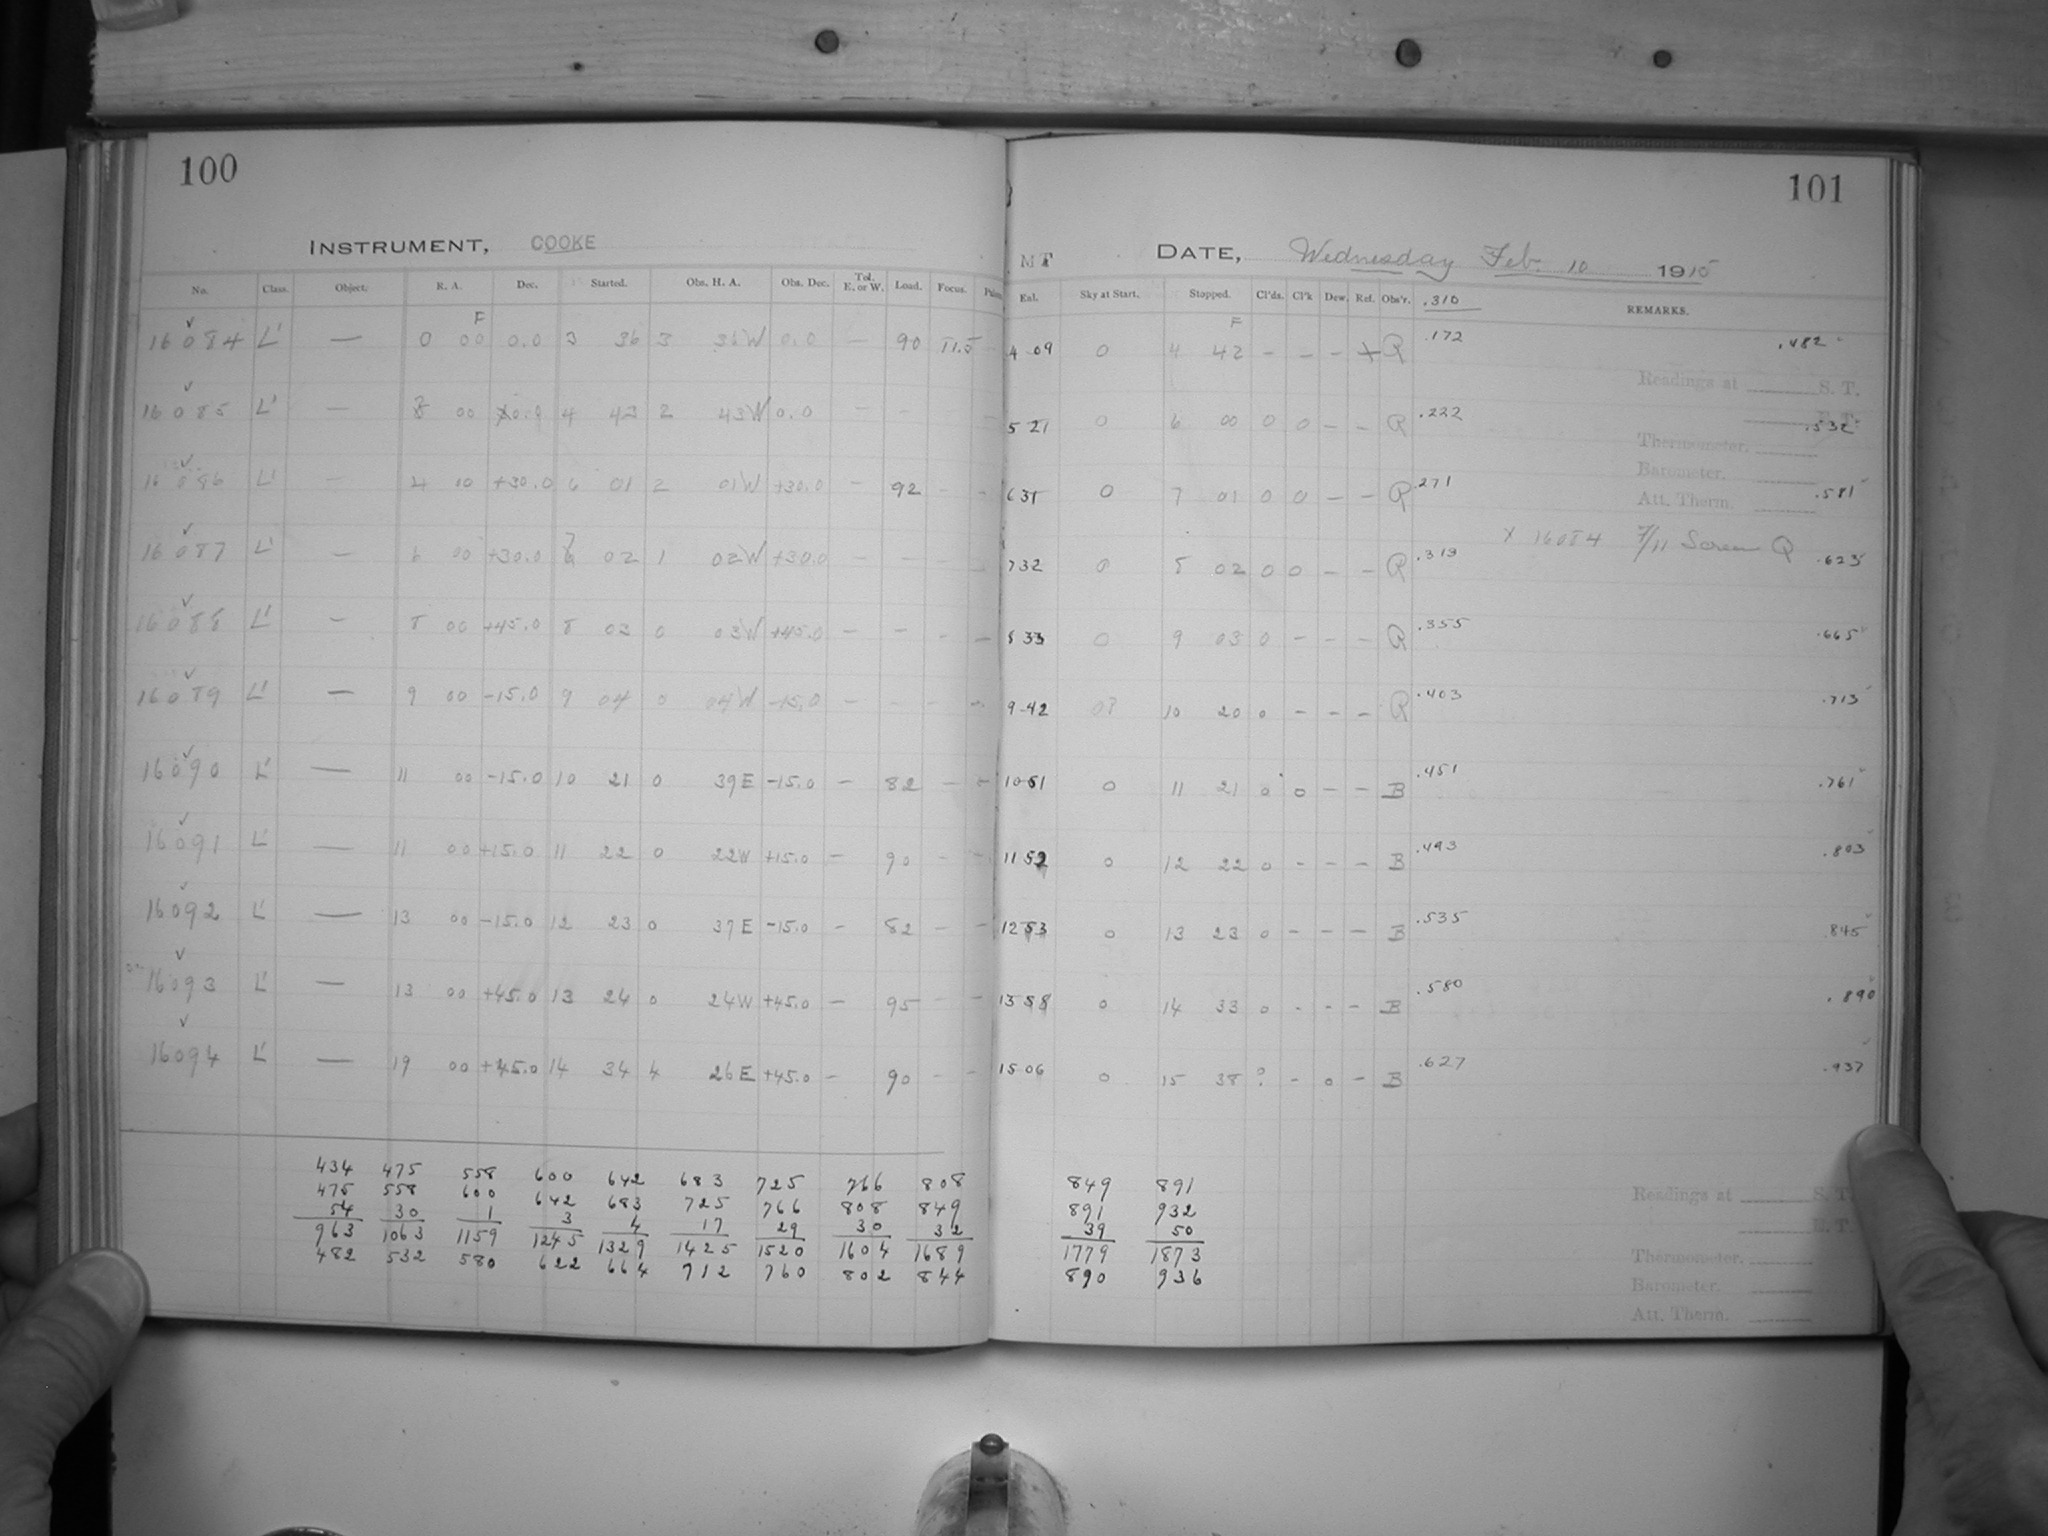 100
INSTRUMENT, COOKE
No. Class. Object. R. A. Dec. Started. Obs. H. A. Obs. Dec. Tel. E. or W. Load. Focus.
F
16084 L' — 0 00 0.0 3 36 3 36W 0.0 — 90 11.5
16085 L' — 00 4 43 2 43W 0.0 — -
16086 L' — 4 00 +30.0 6 01 2 01W +30.0 — 92 -
16087 L' — 6 00 +30.0 7 02 1 02W +30.0 — -
16088 L' — 8 00 +45.0 8 03 0 03W +45.0 — - -
16089 L' — 9 00 -15.0 9 04 0 04W -15.0 — - -
16090 L' — 11 00 -15.0 10 21 0 39E -15.0 - 82 - -
16091 L' — 11 00 +15.0 11 22 0 22W +15.0 - 90 - -
16092 L' — 13 00 -15.0 12 23 0 37E -15.0 - 82 - -
16093 L' — 13 00 +45.0 13 24 0 24W +45.0 - 95 - -
16094 L' — 19 00 +45.0 14 34 4 26E +45.0 - 90 - -
434 475 558 600 642 683 725 766 808
475 558 600 642 683 725 766 808 849
54 30 1 3 4 17 29 30 32
963 1063 1159 1245 1329 1425 1520 1604 1689
482 532 580 622 664 712 760 802 844
101
MT DATE, Wednesday Feb. 10 1915
Enl. Sky at Start. Stopped. Cl'ds. Cl'k Dew. Ref. Obs'r. .310 REMARKS.
F
4 09 0 4 42 - - - X R .172 .482
Readings at S. T.
5 21 0 6 00 0 0 - - R .222 .532
Thermometer.
Barometer.
6 31 0 7 01 0 0 - - R .271 .581
Att. Therm.
X 16084 7/11 Screen R
7 32 0 8 02 0 0 - - R .313 .623
8 33 0 9 03 0 - - - R .355 .665
9 42 0? 10 20 0 - - - R .403 .713
10 51 0 11 21 0 0 - - B .451 .761
11 52 0 12 22 0 - - - B .493 .803
12 53 0 13 23 0 - - - B .535 .845
13 58 0 14 33 0 - - - B .580 .890
15 06 0 15 38 ? - 0 - B .627 .937
849 891
891 932
39 50
1779 1873
890 936
Readings at S. T.
E. T.
Thermometer.
Barometer.
Att. Therm.